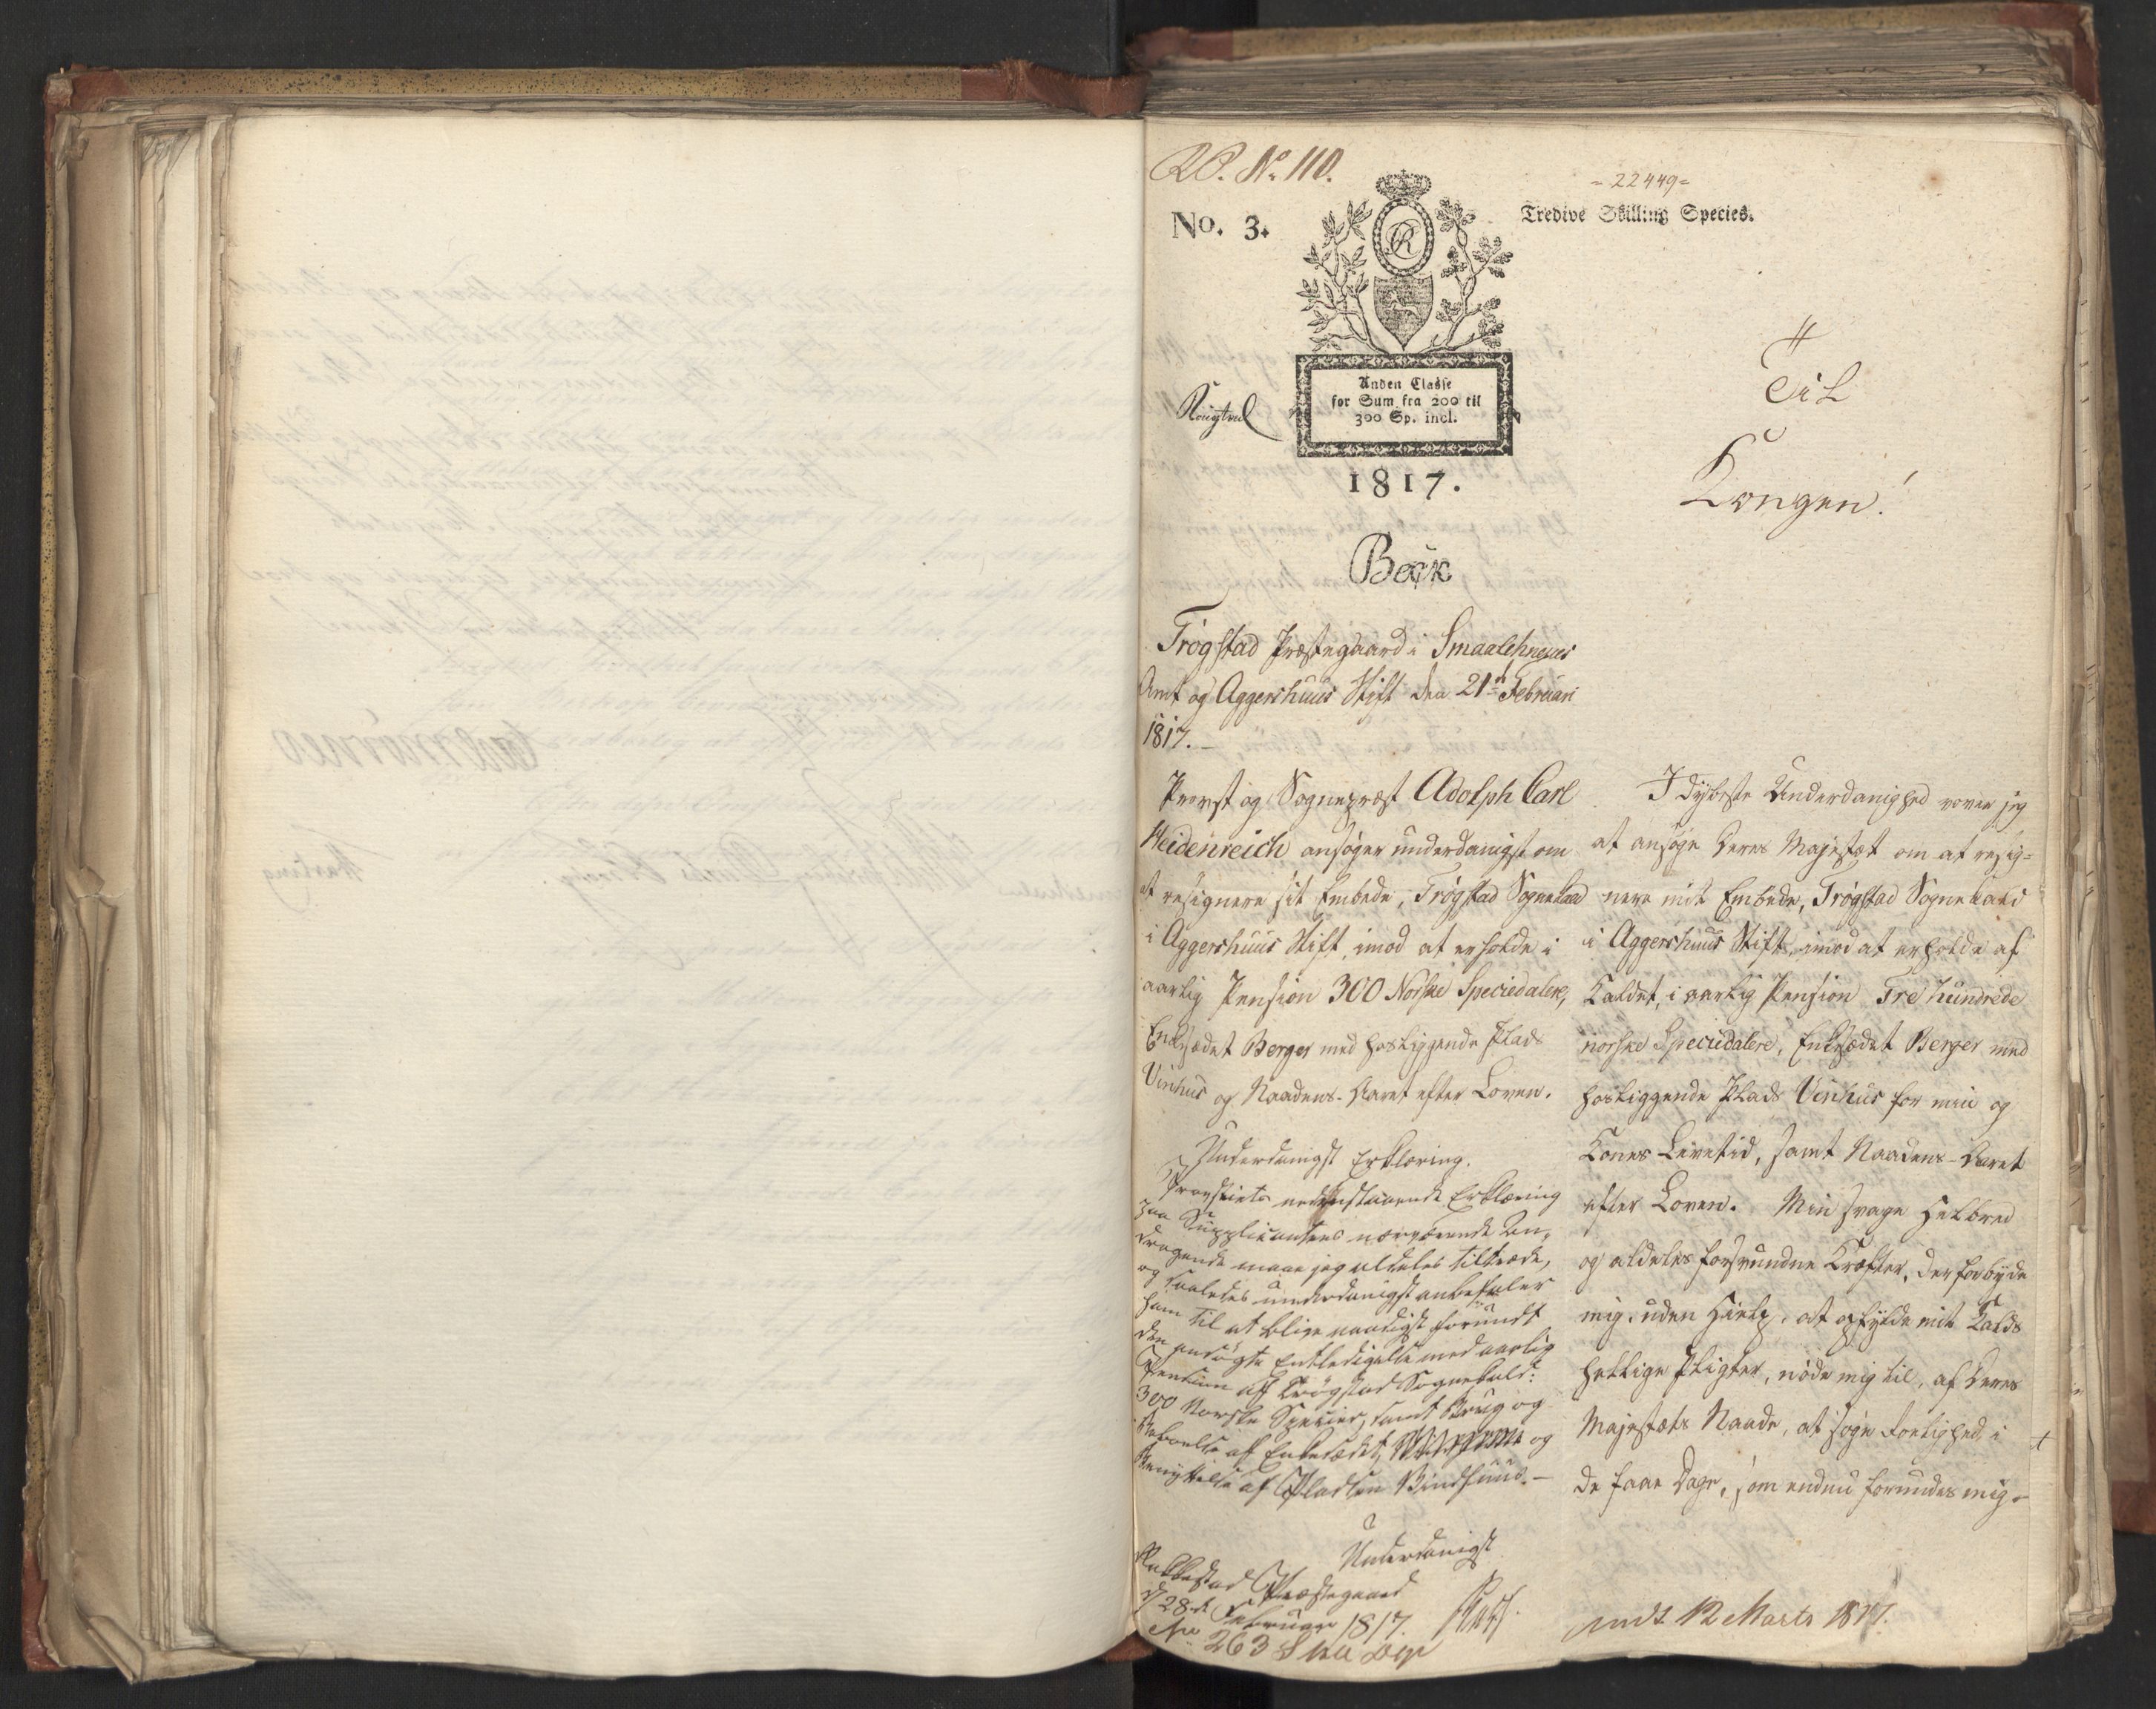 No. 110.
= 22449 =
No. 3.
Tredive Skilling Species.
R
Anden Classe
for Sum fra 200 til
300 Sp. incl.
1817.
Til
Kongen!
Beck
Trøgstad Præstegaard i Smaalehnenes
Amt og Aggershuus Stift den 21de Februari
1817.
Provst og Sognepræst Adolph Carl
Heidenreich ansøger underdanigst om
at resignere sit Embede, Trøgstad Sognekald
i Aggershuus Stift, imod at erholde i
aarlig Pension 300 Norske Speciedalere,
Enkesædet Berger med hosliggende Plads
Vinhus og Naadens-Aaret efter Loven.
Underdanigst Erklæring.
Provstiets nedenstaaende Erklæring
paa Supplicantens nærværende An-
dragende maae jeg aldeles tiltræde,
og saaledes underdanigst anbefaler
ham til at blive naadigst forundt
den ansøgte Entledigelse med aarlig
Pension af Trøgstad Sognekald:
300 Norske Species, samt Brug og
Beboelse af Enkesædet, og
Benyttelse af Pladsen Vindhuus.-
Underdanigst
Rakkestad Præstegaard
d 28de Februar 1817.
No 263
I dybeste Underdanighed vover jeg
at ansøge Deres Majestæt om at resig=
nere mit Embede, Trøgstad Sognekald
i Aggershuus Stift, imod at erholde af
Kaldet, i aarlig Pension Tre hundrede
norske Speciedalere, Enkesædet Berger med
hosliggende Plads Vinhus for min og
Kones Levetid, samt Naadens-Aaret
efter Loven. Min svage Helbred
og aldeles forsvundne Kræfter, der forbyde
mig, uden Hielp, at opfylde mit Kalds
hellige Pligter, nøde mig til, af Deres
Majestæts Naade, at søge Roelighed i
de faae Dage, som endnu forundes mig.
indk. 12 Marts 1817.